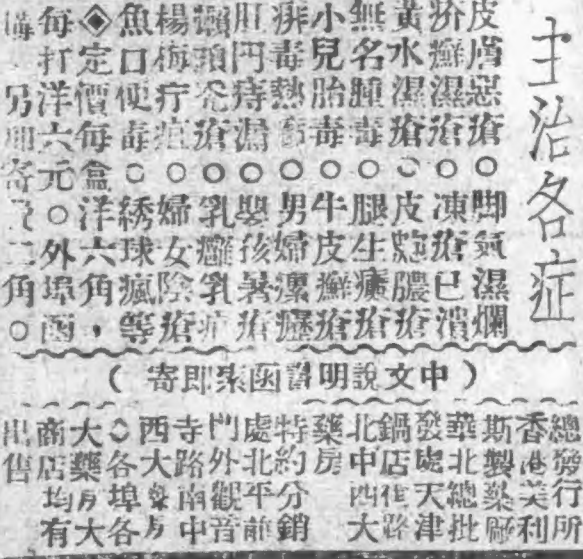 主治各症
皮膚惡瘡○脚氣濕爛
疥癬濕瘡○凍瘡已潰
黃水濕瘡○皮膿瘡
無名腫毒○腿生瘡
小兒胎毒○牛皮癬瘡
痱毒熱○男婦瘰癧
肛門痔漏○嬰孩暑
癩頭禿瘡○乳癰乳
楊梅疔○婦女陰瘡
魚口便毒○綉球瘋等
◈定價每盒洋六角，
每打洋六元○外埠函
購另加寄費二角○
（中文說明書函索即寄）
總發行所
香港美利
斯製藥廠
華北總批
發處天津
鍋店路
北中西大
藥房
特約分銷
處北平前
門外觀音
寺路南中
西大藥房
○各埠各
大藥房大
商店均有
出售